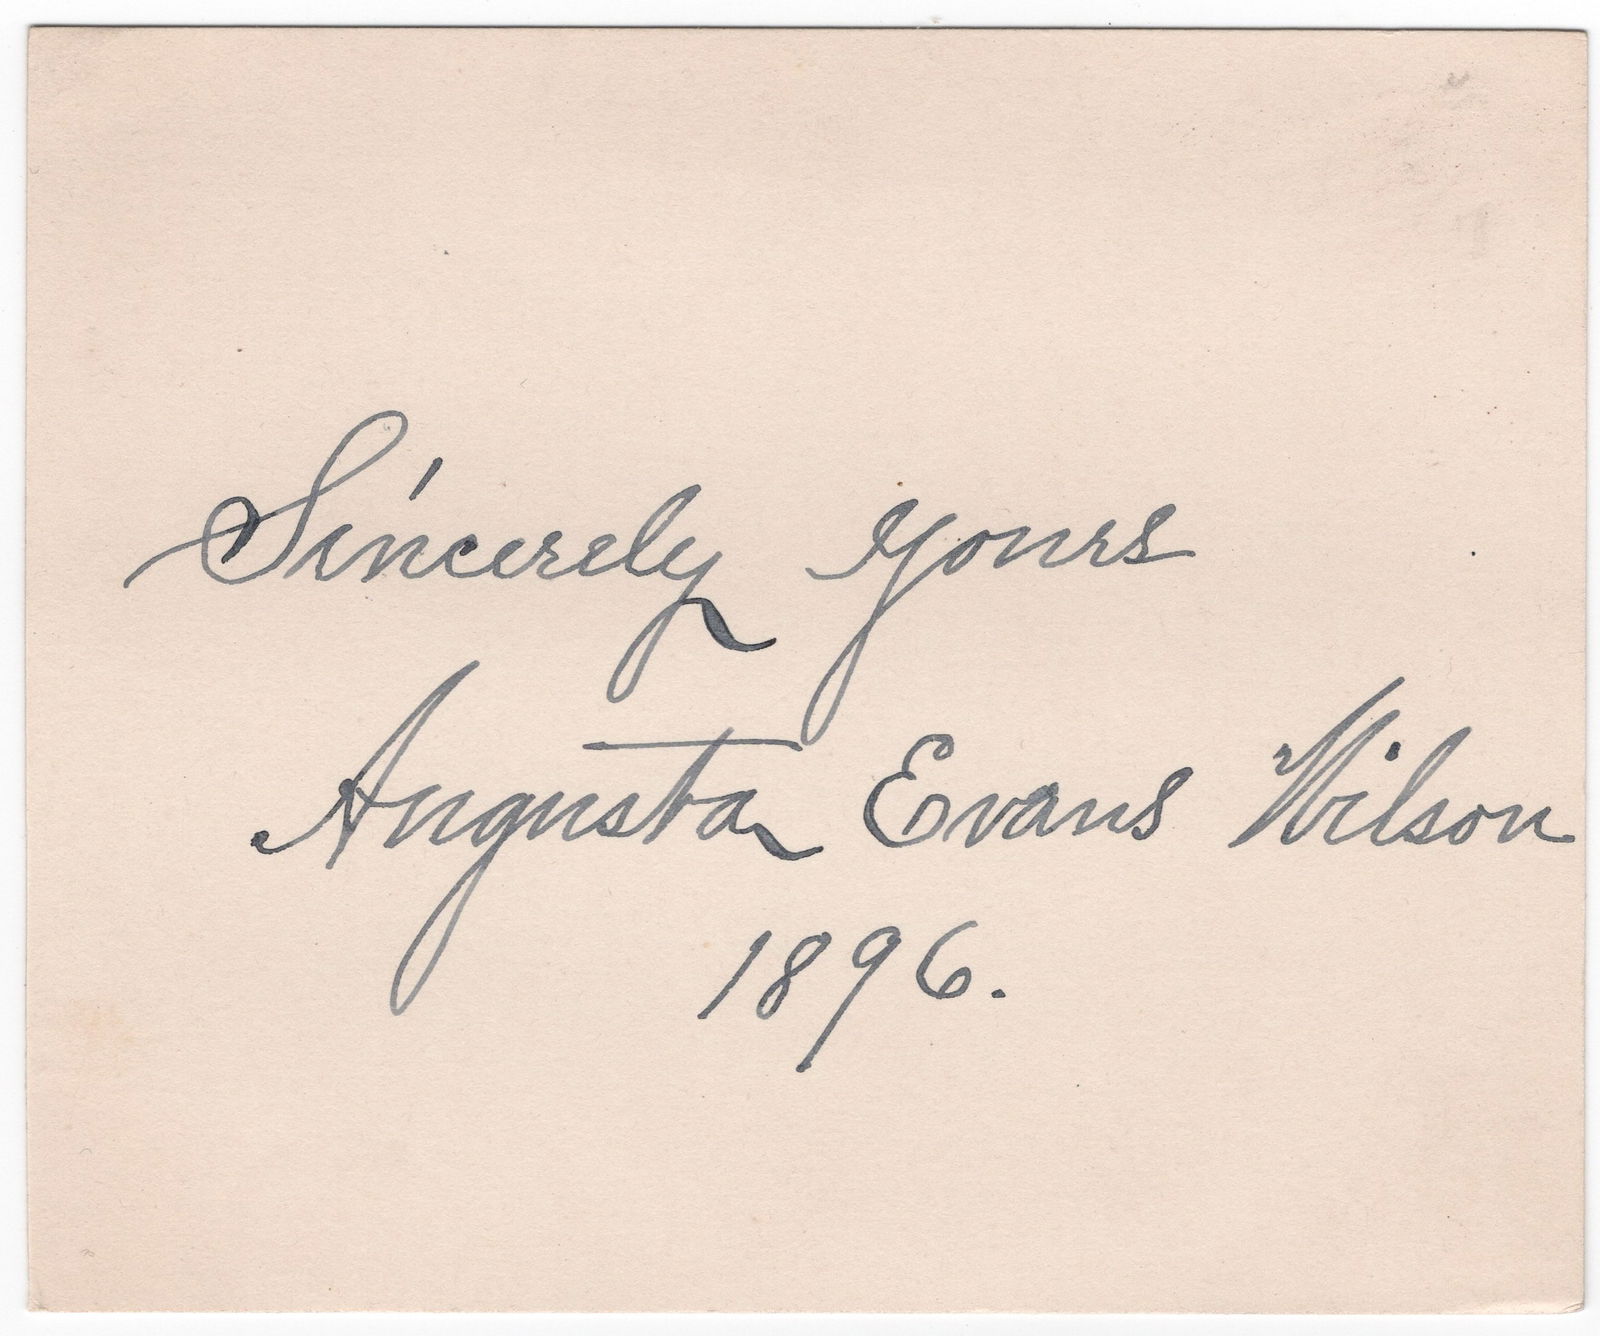 Sincerely yours
Augusta Evans Wilson
1896.